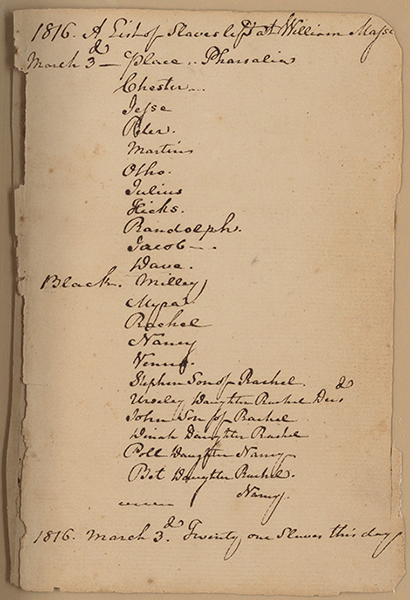 1816. A List of Slaves left at William Masse
March 3d — place .. Pharsalia
Chester —
Jesse
Peter.
Martin
Otho.
Julius
Hicks.
Randolph.
Jacob —
Dave.
Black. Milley
Myra
Rachel
Nancy
Venus.
Stephen Son of Rachel.
Daughter Rachel Decd
John Son of Rachel
Dinah Daughter Rachel
Poll Daughter Nancy
Bet Daughter Rachel.
Nancy.
1816. March 3d. Twenty one Slaves this day